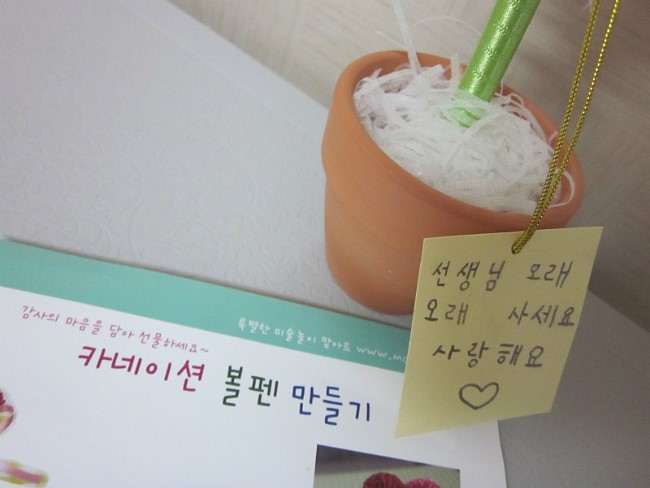 선생님 오래
오래 사세요
사랑해요
특별한 미술놀이 맘아트 www.m
감사의 마음을 담아 선물하세요~
카네이션 볼펜 만들기